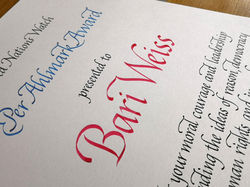 Nations Watch
Per Ahlmark Award
presented to
Bari Weiss
your moral courage and leadership
the ideas of reason, democracy
human rights an